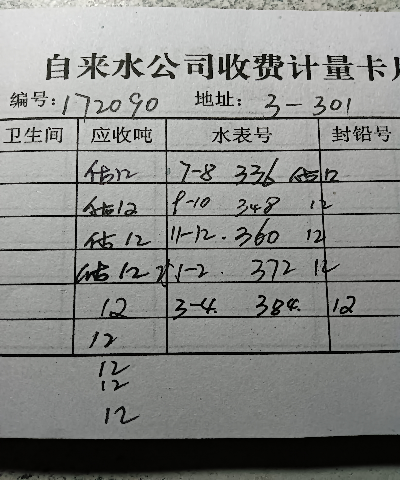 自来水公司收费计量卡片
编号:172090 地址: 3-301
卫生间 应收吨 水表号 封铅号
估12 7-8 336 估12
估12 9-10 348 12
估12 11-12. 360 12
估12 1-2. 372 12
12 3-4. 384. 12
12
12
12
12